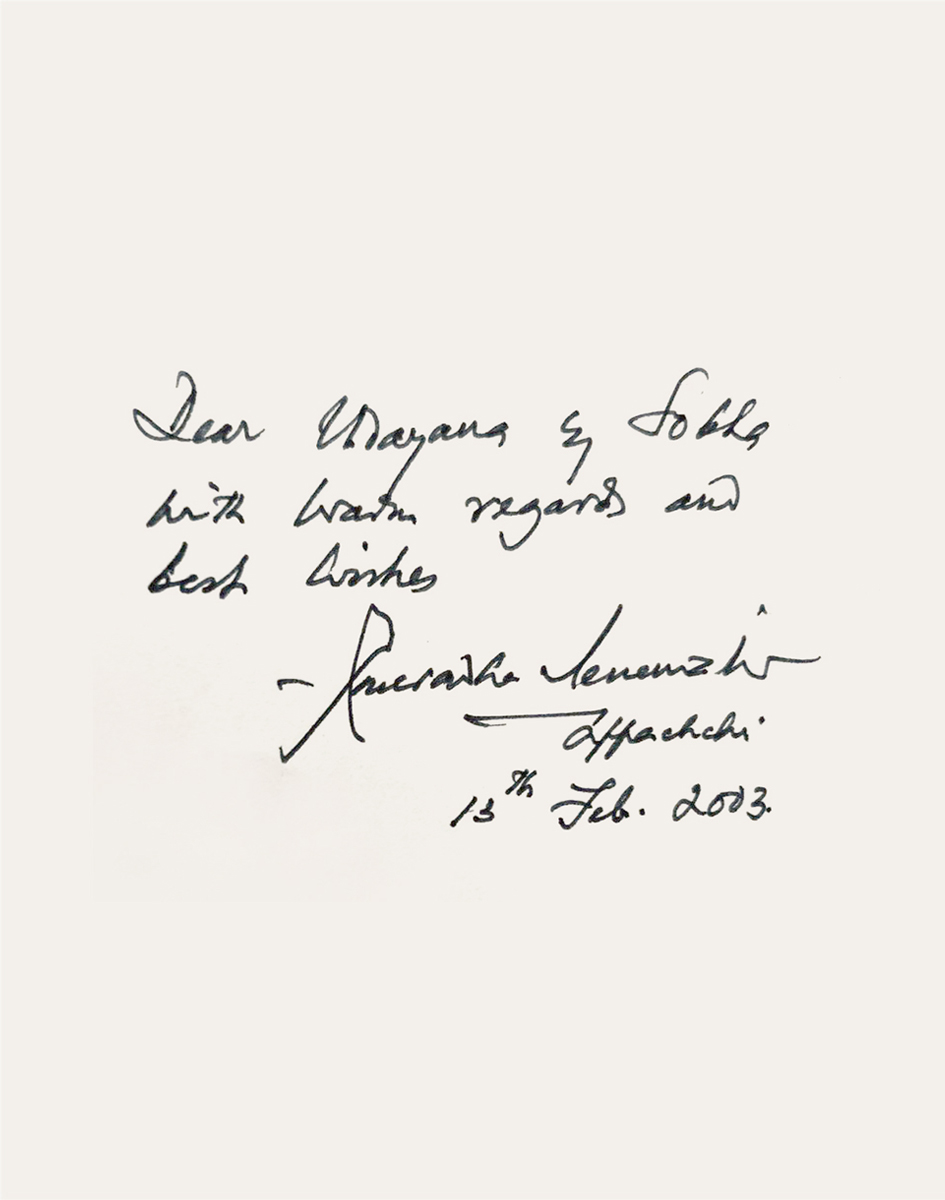 Dear Udayana & Sobha
with warm regards and
best wishes
Appachchi
13th Feb. 2003.